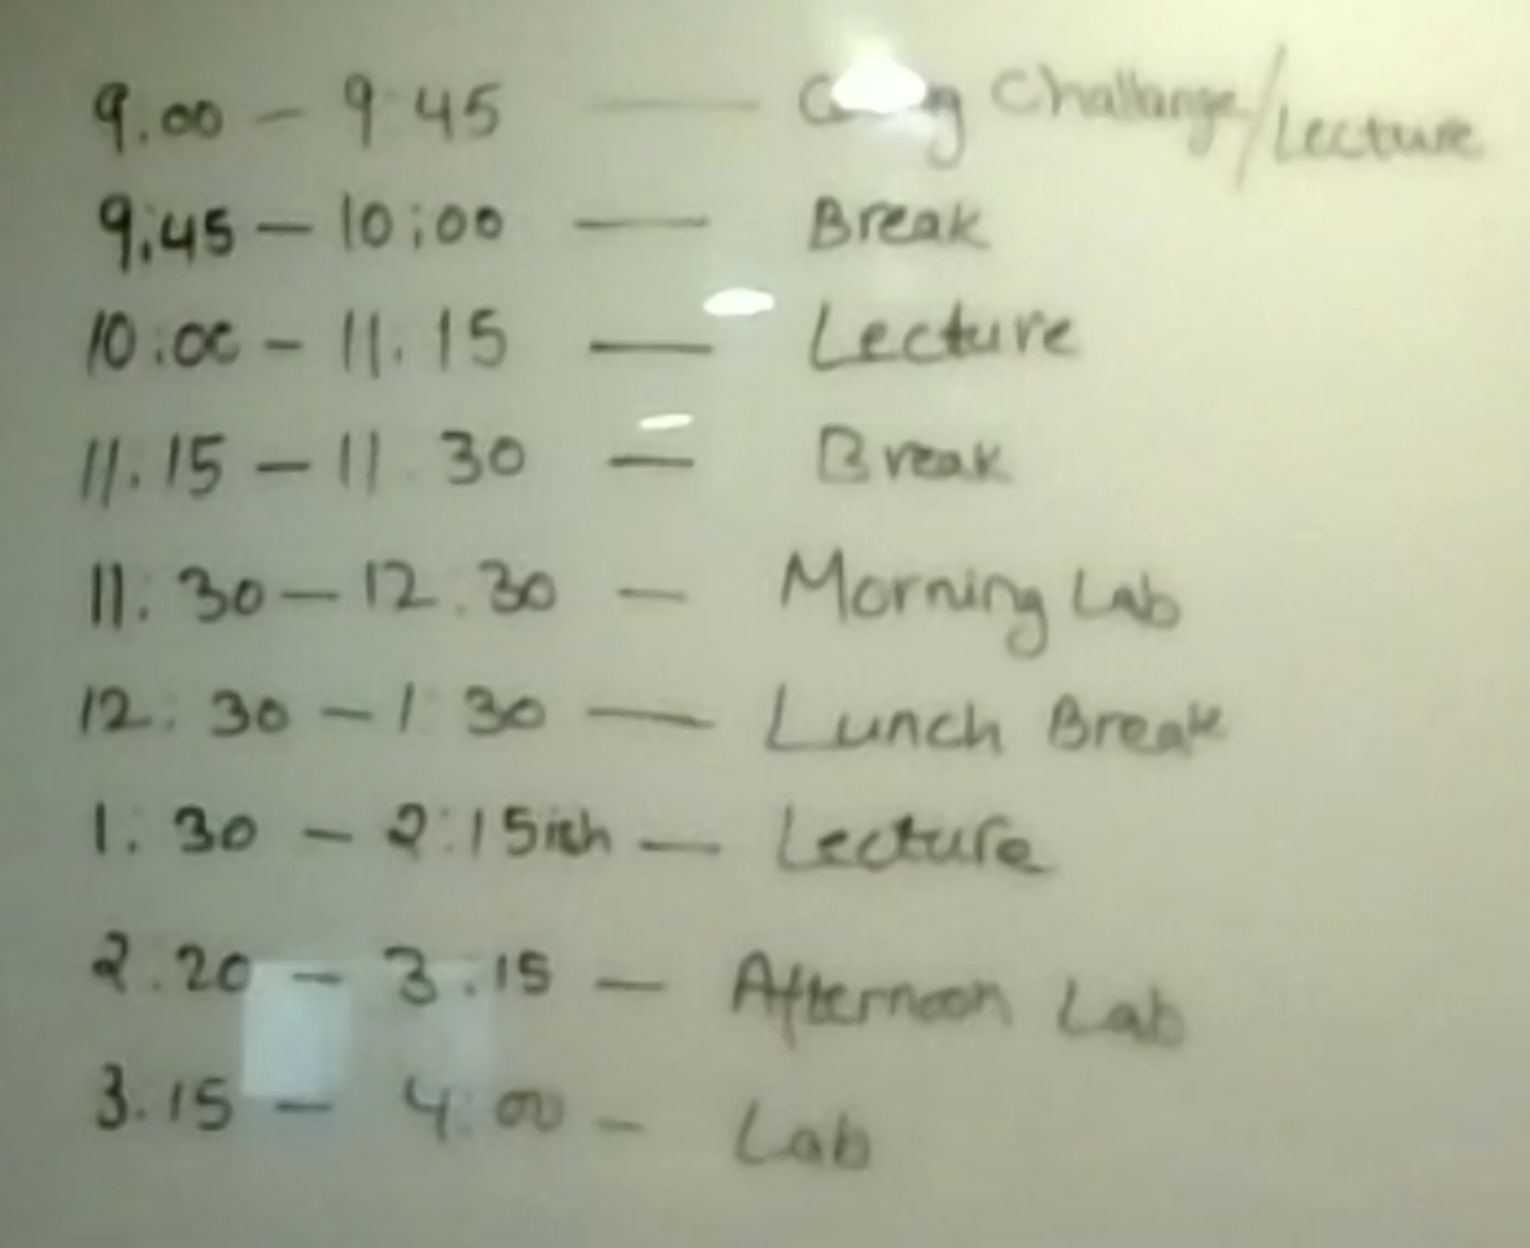 9.00 - 9:45 — Challange/Lecture
9:45 - 10:00 — Break
10:00 - 11.15 — Lecture
11.15 - 11 30 — Break
11:30 - 12.30 — Morning Lab
12:30 - 1 30 — Lunch Break
1:30 - 2:15ish — Lecture
2.20 - 3.15 — Afternoon Lab
3.15 - 4:00 - Lab